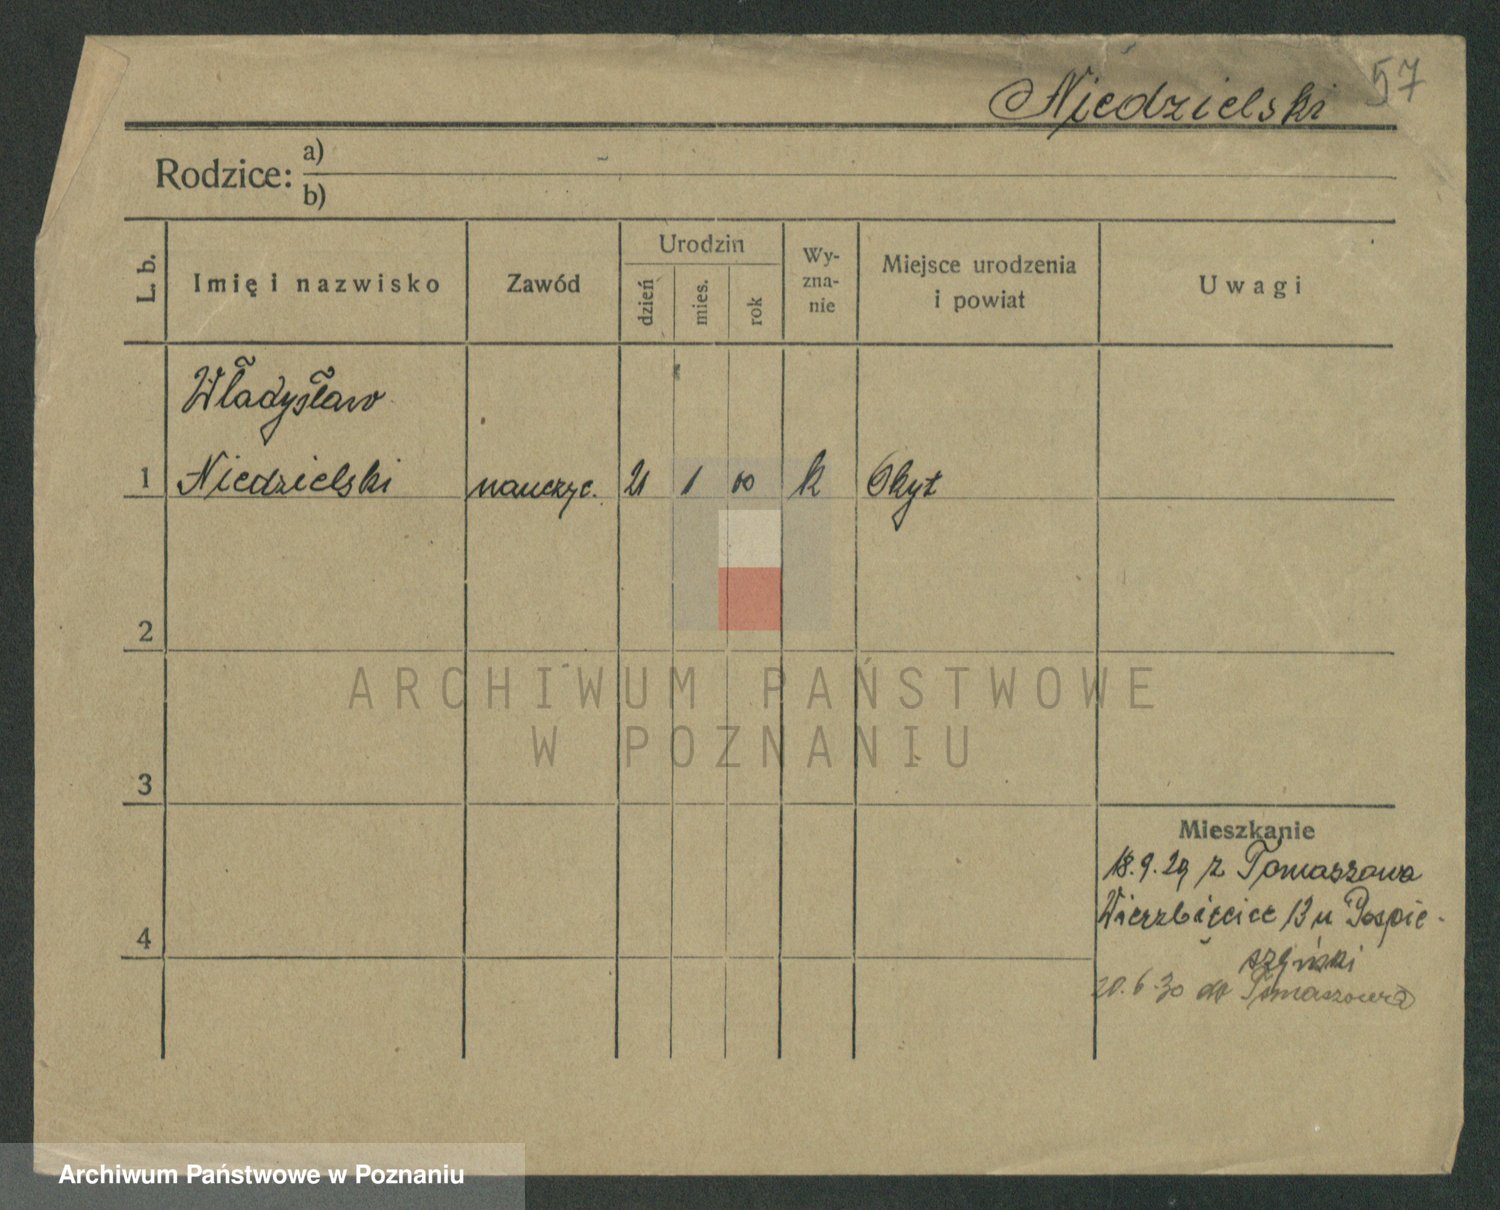 57
Niedzielski
Rodzice: a)
b)
L. b. Imię i nazwisko Zawód Urodzin dzień mies. rok Wy-zna-nie Miejsce urodzenia i powiat Uwagi
Władysław
1 Niedzielski nauczyc. 21 1 00 k Okyt
2
ARCHIWUM PAŃSTWOWE
W POZNANIU
3
Mieszkanie
18.9.29 z Tomaszowa
Wierzbięcice 13 u Pospie-
4
szyński
20.6.30 do Tomaszowa
Archiwum Państwowe w Poznaniu